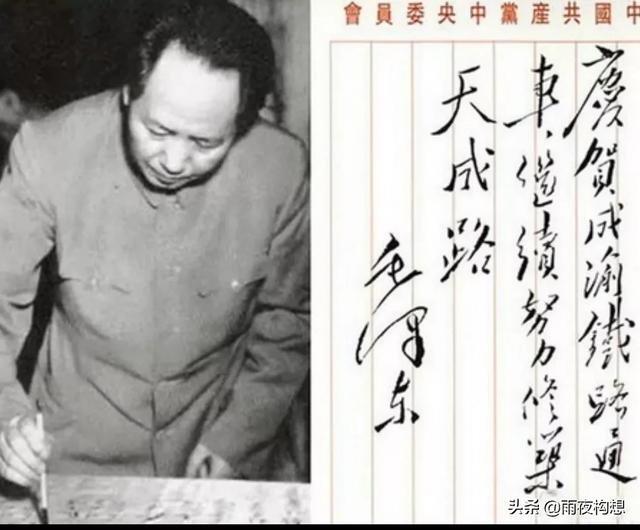 中國共産黨中央委員會
慶賀成渝鐵路通
車、继續努力修築
天成路
毛澤东
头条 @雨夜构想